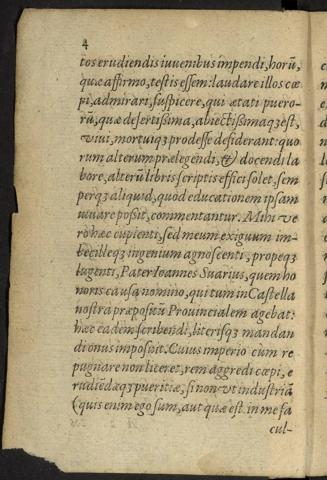 4
tos erudiendis iuvenibus impendi, horũ,
quæ affirmo, testis essem: laudare illos cœ
pi, admirari, suspicere, qui ætati puero-
rũ, quæ desertissima, abiectissimaq3 est,
vivi, mortuiq3 prodesse desiderant: quo
rum alterum prælegendi, & docendi la
bore, alterũ libris scriptis effici solet, sem
perq3 aliquid, quod educationem ipsam
iuvare possit, commentantur. Mihi ve
rò hæc cupienti, sed meum exiguum im-
becilleq3 ingenium agnoscenti, propeq3
lugenti, Pater Ioannes Suarius, quem ho
noris causa nomino, qui tum in Castella
nostra præpositũ Provincialem agebat:
hæc eadem scribendi, literisq3 mandan
di onus imposuit. Cuius imperio cùm re
pugnare non liceret, rem aggredi cœpi, e
rudiẽdæq3 pueritiæ, si non vt industriã
(quis enim ego sum, aut quæ est in me fa
cul-